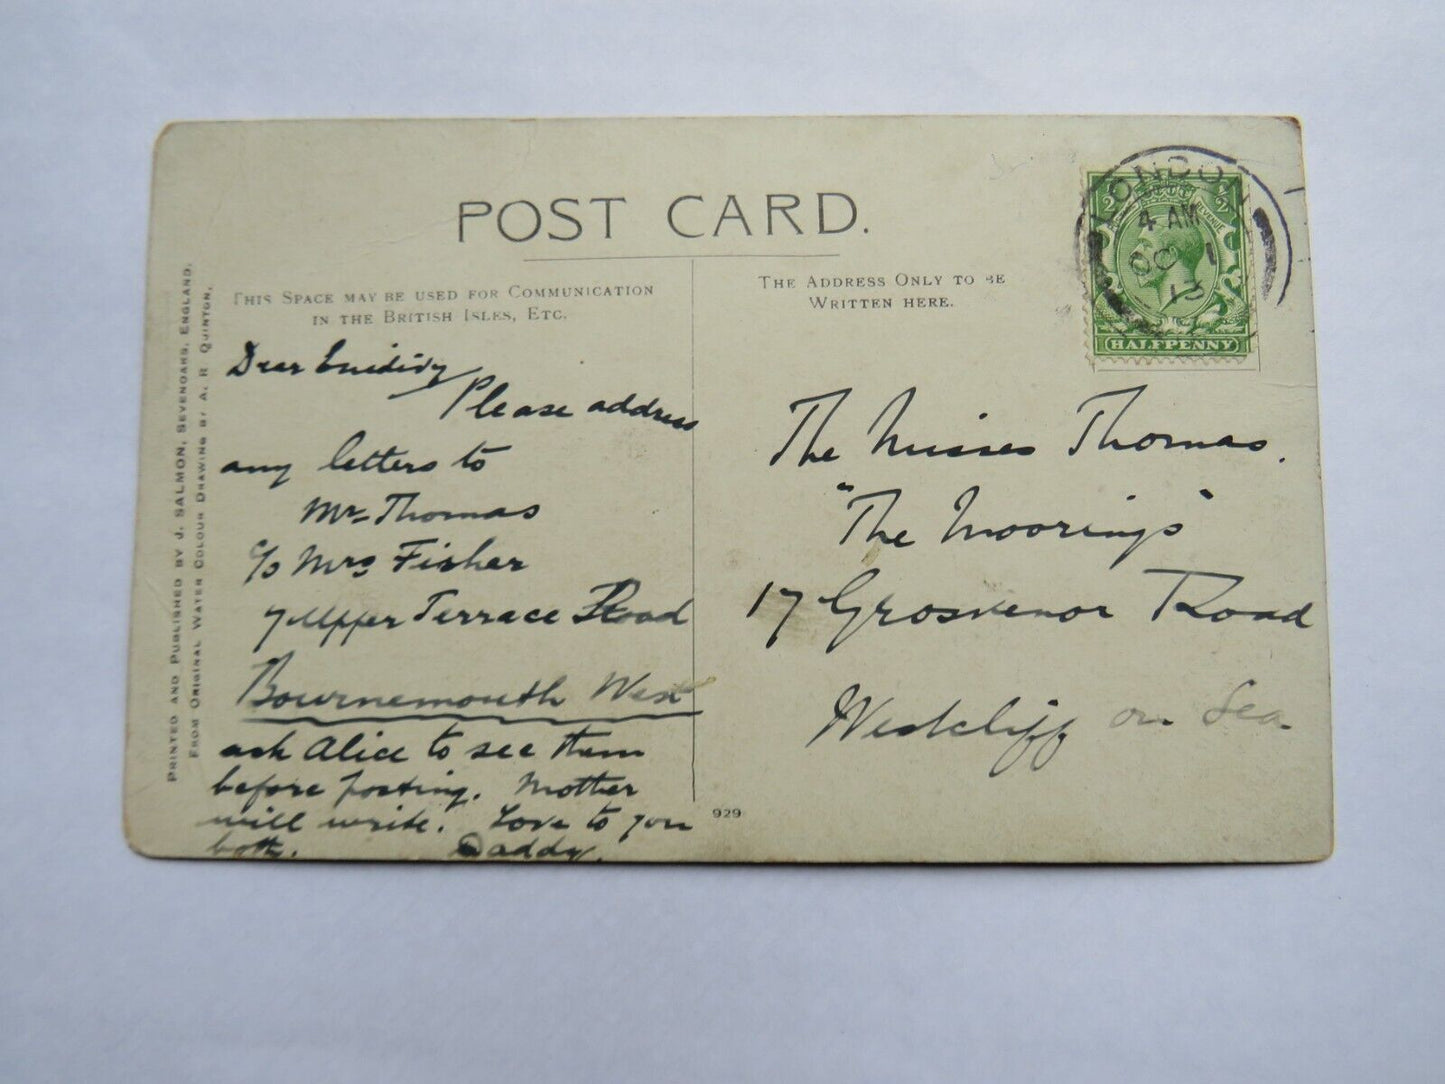 POST CARD.
THIS SPACE MAY BE USED FOR COMMUNICATION
IN THE BRITISH ISLES, ETC.
THE ADDRESS ONLY TO BE
WRITTEN HERE.
LONDON
4 AM
OC 1
13
HALFPENNY
Dear
Please address
any letters to
Mr Thomas
c/o Mrs Fisher
7 Upper Terrace Road
Bournemouth West
ask Alice to see them
before posting. Mother
will write. Love to you
both. Daddy.
The Misses Thomas.
"The Moorings"
17 Grosvenor Road
Westcliff on Sea
929
PRINTED AND PUBLISHED BY J. SALMON, SEVENOAKS, ENGLAND.
FROM ORIGINAL WATER COLOUR DRAWING BY A. R. QUINTON.